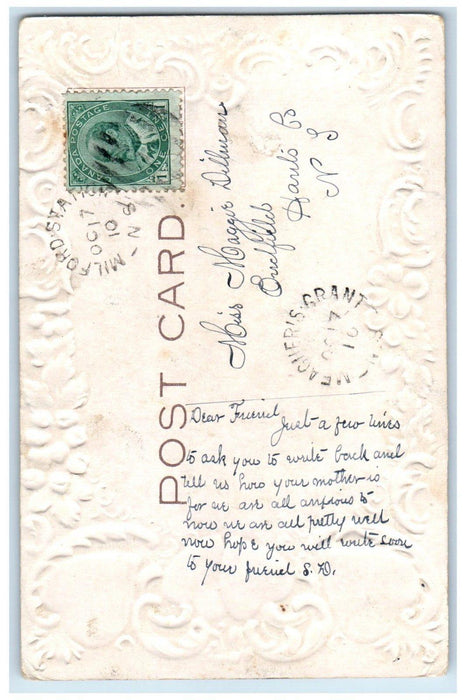 CANADA POSTAGE
ONE CENT
1 1
MILFORD STATION
N.S.
OC 17
10
POST CARD.
Miss Maggie Dillman
Enfield
Hants Co
N S
MEAGHERS GRANT
OC 17
10
Dear Friend Just a few lines
to ask you to write back and
tell us how your mother is
for we are all anxious to
now we are all pretty well
now hope you will write soon
to your friend S. D.